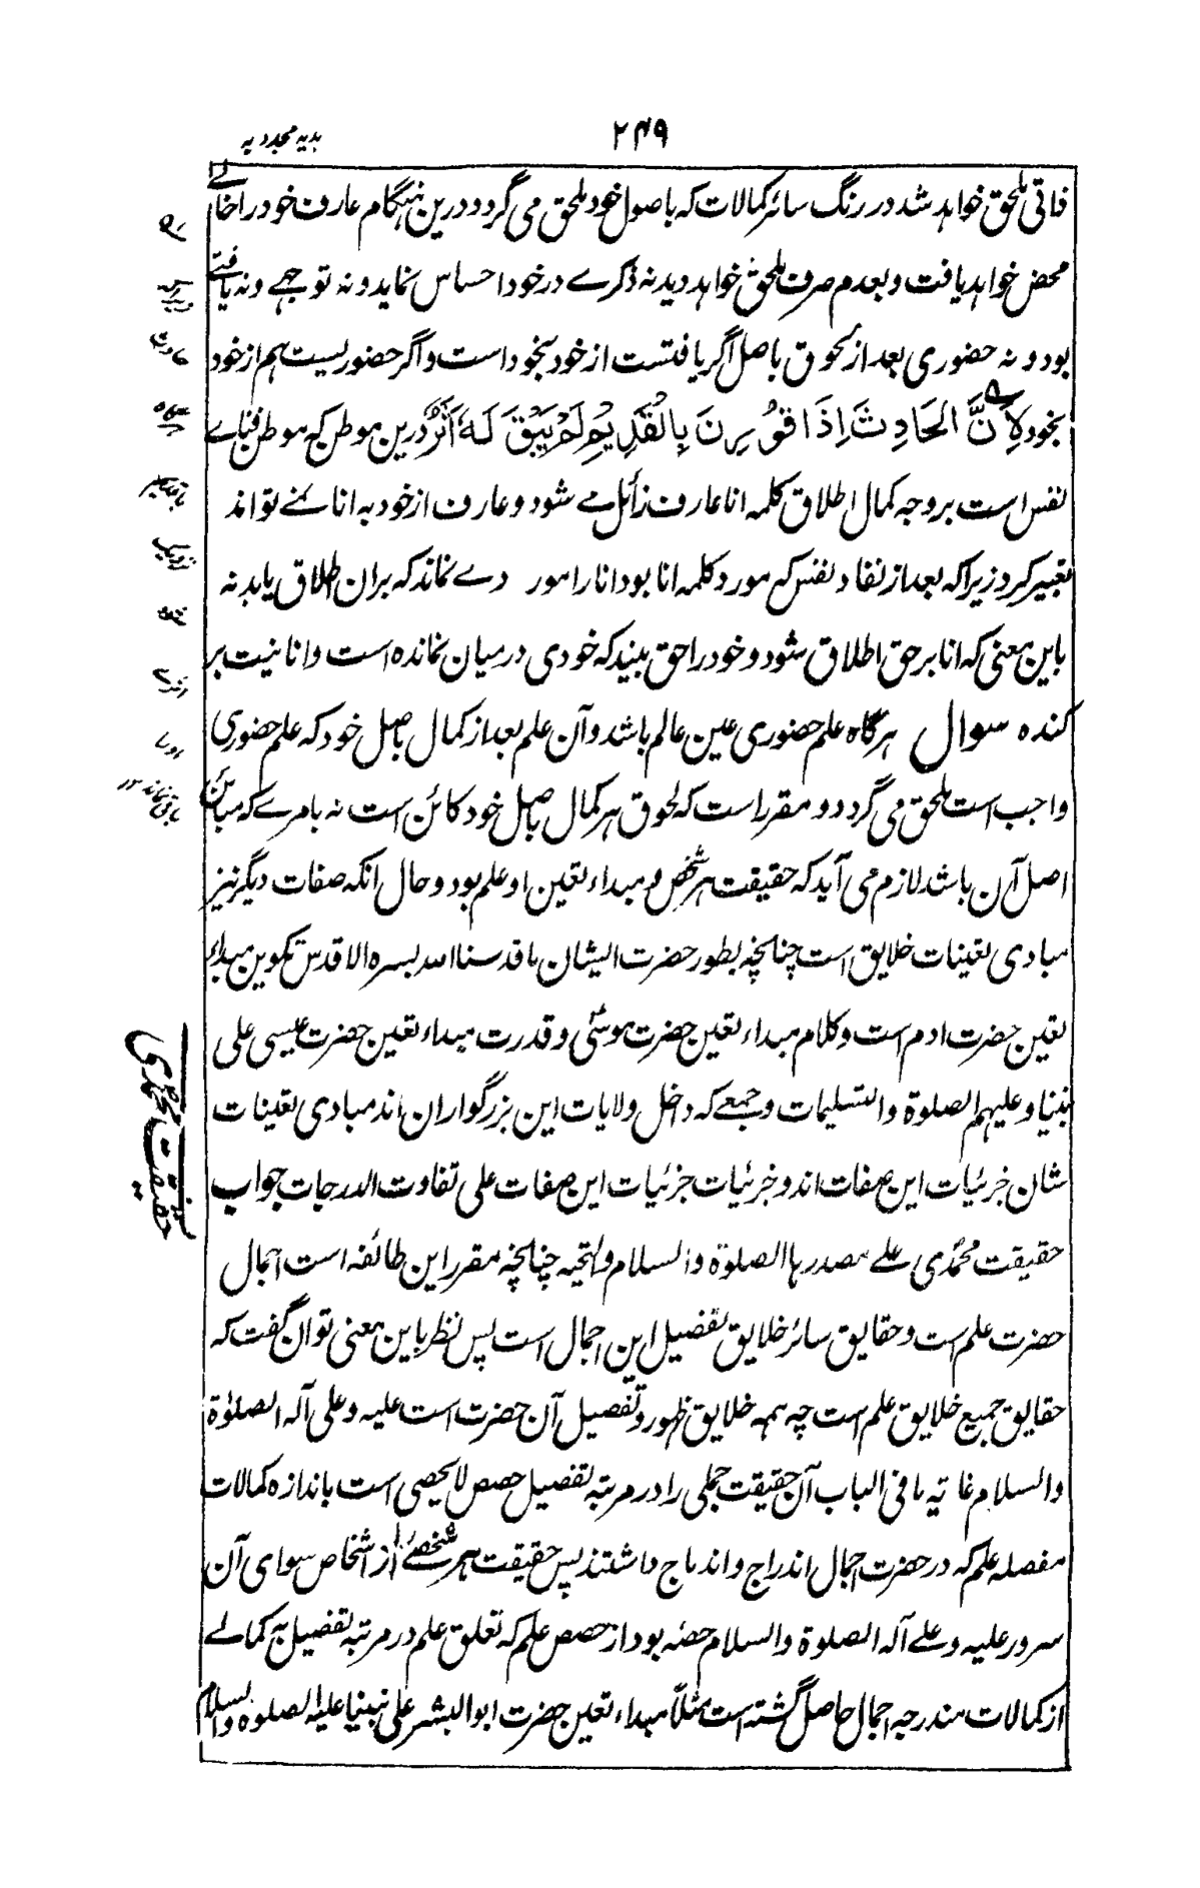 ۲۴۹
ہدیہ مجددیہ
فاتی ملحق خواہد شد در رنگ سائر کمالات کہ باصول خود ملحق می گردد درین ہنگام عارف خود را خالے
محض خواہد یافت و بعدم صرف ملحق خواہد دید نہ ذکرے در خود احساس نماید و نہ توجہے و نہ یافتے
بود و نہ حضوری بعد از لحوق باصل اگر یافتست از خود بخود است و اگر حضوریست ہم از خود
بخود لِاَنَّ الحَادِثَ اِذَا قُوْرِنَ بِالْقَدِیْمِ لَمْ یَبْقَ لَہٗ اَثَرٌ درین موطن کہ موطن فناے
نفس است بر وجہ کمال اطلاق کلمہ انا عارف زائل مے شود و عارف از خود بہ انا نمے تواند
تعبیر کرد زیراکہ بعد از نفاد نفس کہ مورد کلمہ انا بود انا را مور دے نماند کہ بران اطلاق یابد نہ
باین معنی کہ انا بر حق اطلاق شود و خود را حق بیند کہ خودی درمیان نماندہ است و انانیت بر
کندہ سوال ہرگاہ علم حضوری عین عالم باشد و آن علم بعد از کمال باصل خود کہ علم حضوری
واجب است ملحق می گردد و مقرر است کہ لحوق ہر کمال باصل خود کائن است نہ بامرے کہ مبائن
اصل آن باشد لازم می آید کہ حقیقت ہر شخص و مبداء تعین او علم بود و حال انکہ صفات دیگر نیز
مبادی تعینات خلایق است چنانچہ بطور حضرت ایشان ما قدسنا اللہ بسرہ الاقدس تکوین مبداء
تعین حضرت ادم است و کلام مبداء تعین حضرت موسیٰ و قدرت مبداء تعین حضرت عیسی علی
نبینا و علیہم الصلوۃ والتسلیمات و جمعے کہ داخل ولایات این بزرگواران اند مبادی تعینات
شان جزئیات این صفات اند و جزئیات جزئیات این صفات علی تفاوت الدرجات جواب
حقیقت محمدی علے مصدرہا الصلوۃ والسلام والتحیہ چنانچہ مقرر این طائفہ است اجمال
حضرت علم است و حقایق سائر خلایق تفصیل این اجمال است پس نظر باین معنی توان گفت کہ
حقایق جمیع خلایق علم است چہ ہمہ خلایق ظہور و تفصیل آن حضرت است علیہ و علی آلہ الصلوٰۃ
والسلام غایۃ ما فی الباب آن حقیقت جملی را در مرتبہ تفصیل حصص لا یحصی است باندازہ کمالات
مفصلہ علم کہ در حضرت اجمال اندراج و اندماج داشتند پس حقیقت ہر شخصے از اشخاص سوای آن
سرور علیہ و علے آلہ الصلوۃ والسلام حصہ بود از حصص علم کہ تعلق علم در مرتبہ تفصیل بہ کمالے
از کمالات مندرجہ اجمال حاصل گشتہ است مثلاً مبداء تعین حضرت ابو البشر علی نبینا علیہ الصلوۃ والسلام
حقیقت محمدی